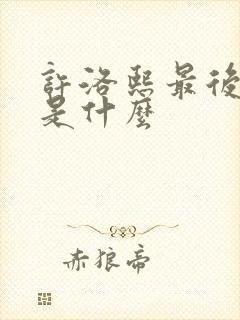 許洛熙最後
是什麼
赤狼帝